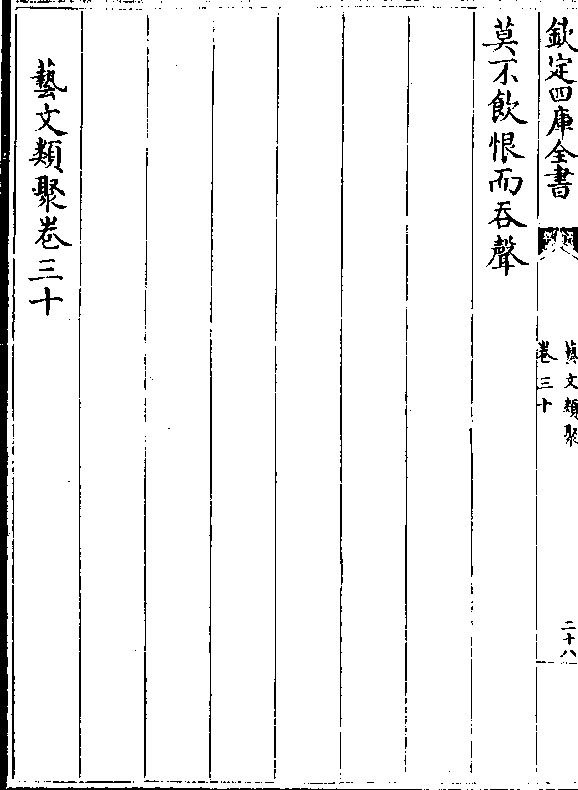 欽定四庫全書
藝文類聚
卷三十
二十八
莫不飲恨而吞聲
藝文類聚卷三十